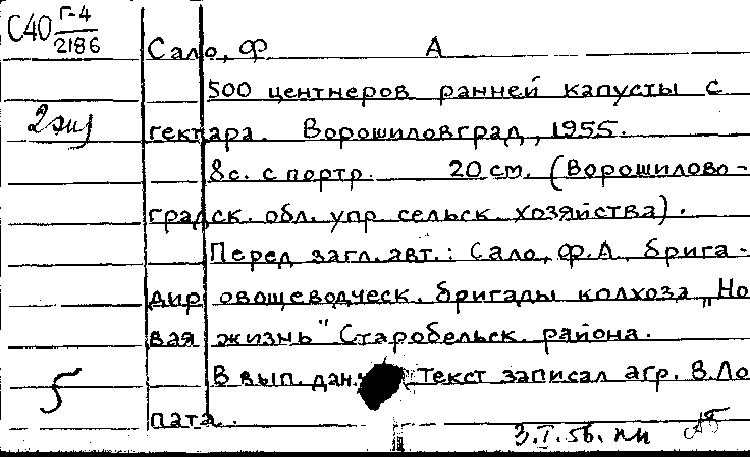 С40 Г-4
2186
Сало, Ф А
500 центнеров ранней капусты с
2 экз
гектара. Ворошиловград, 1955.
8с. с портр. 20 см. (Ворошилово-
градск. обл. упр. сельск. хозяйства).
Перед загл. авт.: Сало, Ф.А. брига-
дир овощеводческ. бригады колхоза „Но
вая жизнь" Старобельск. района.
В вып. дан.: Текст записал агр. В. Ло
5
пата.
3.I.56. пи